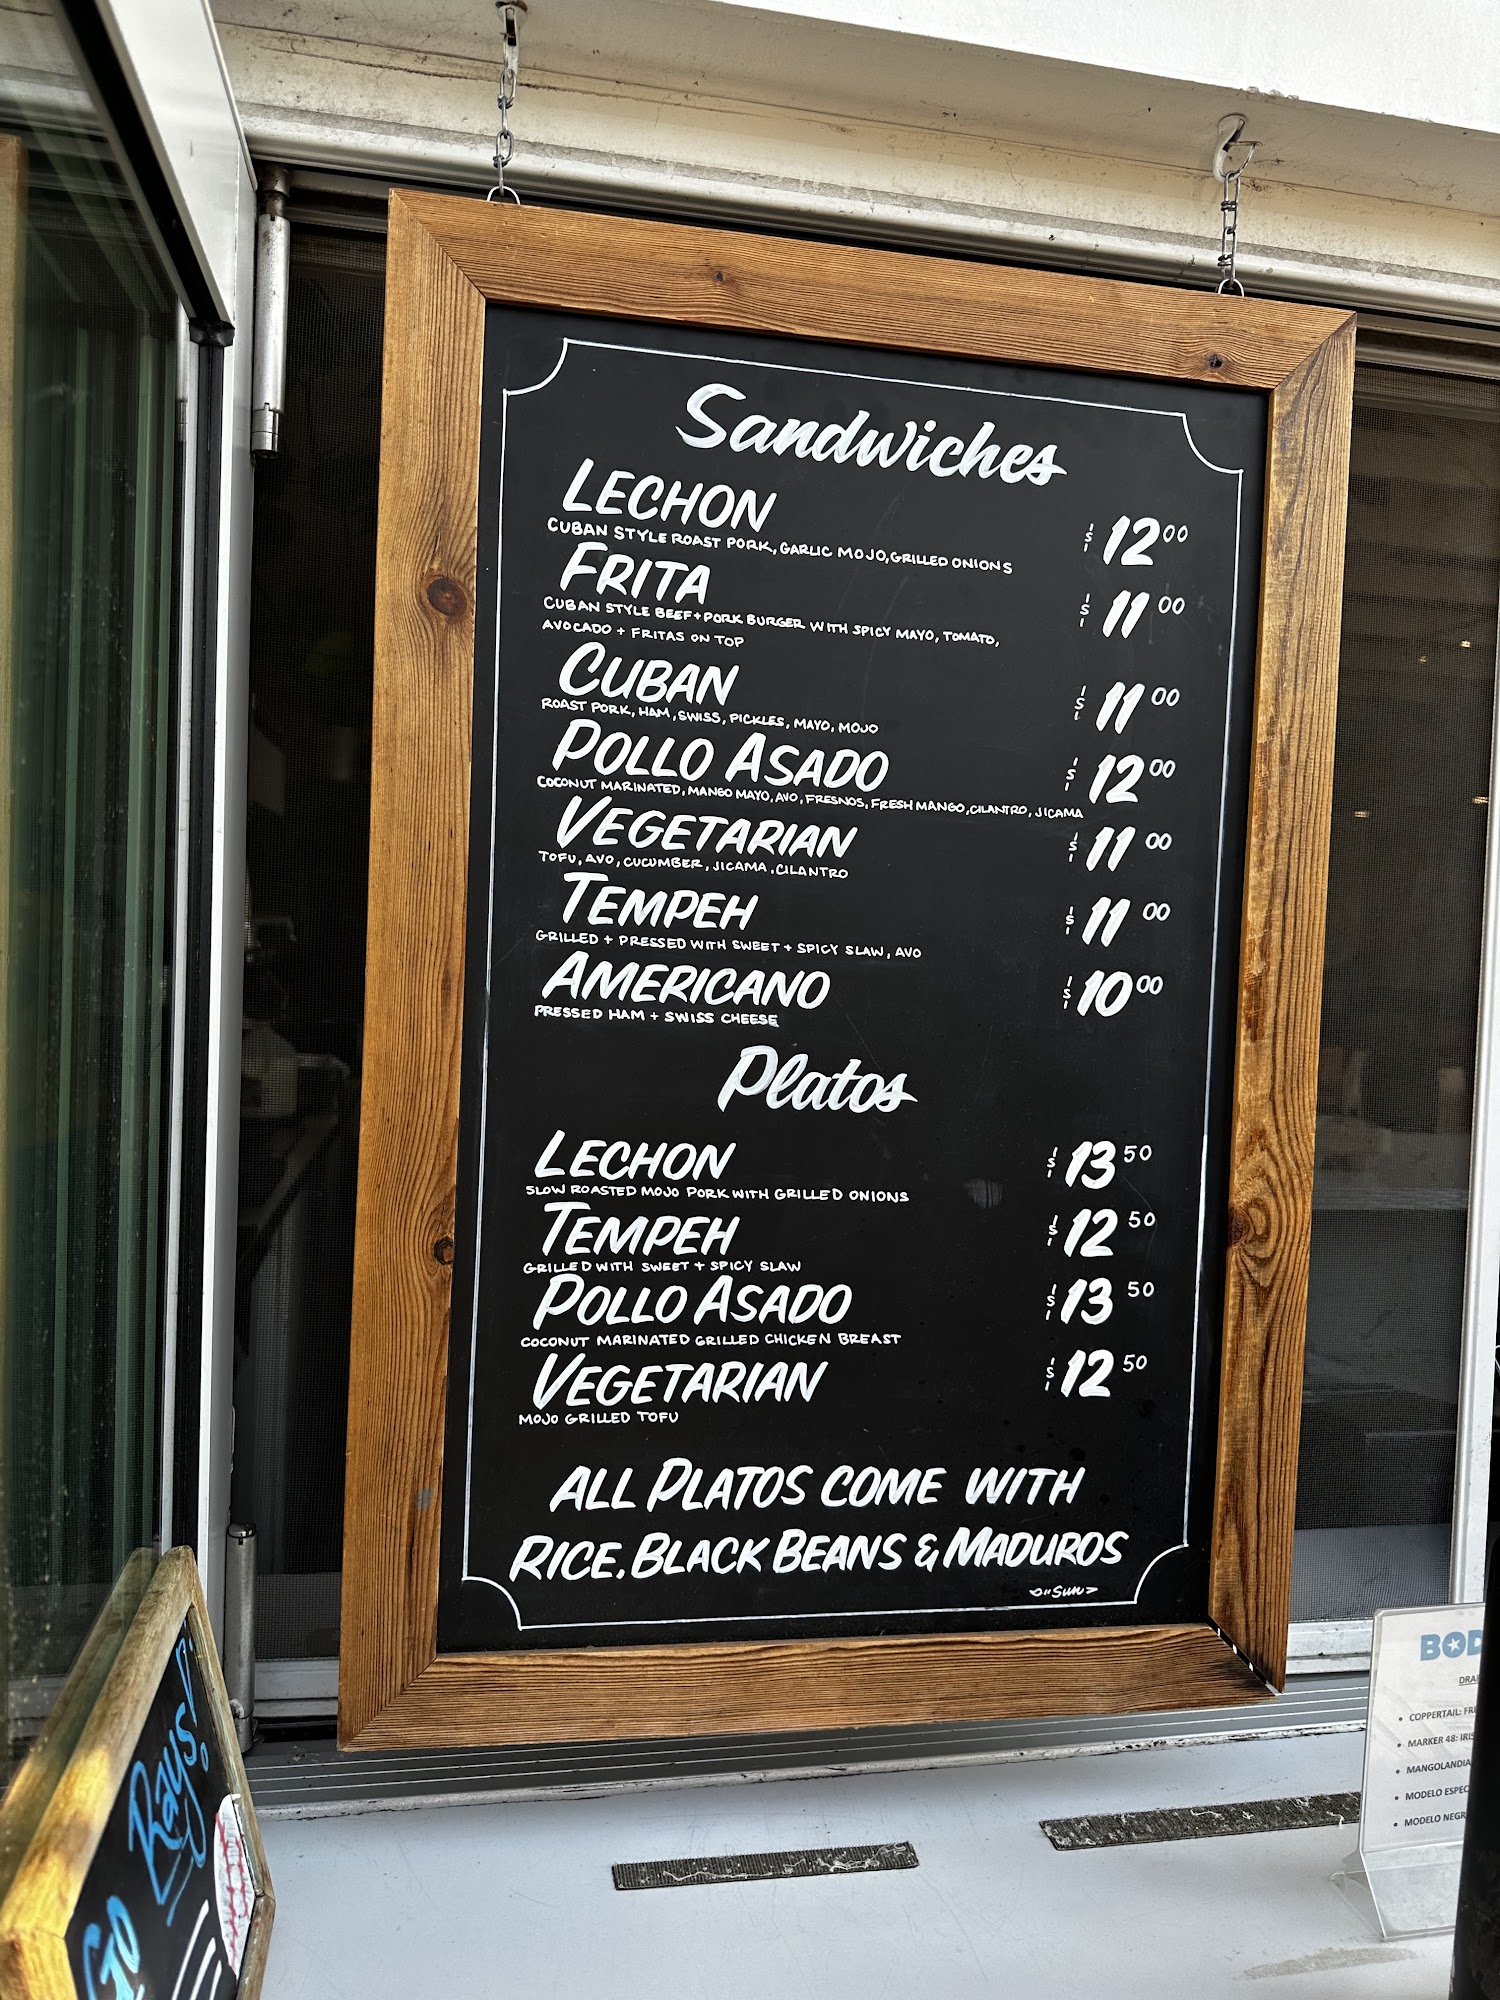 Sandwiches
LECHON
CUBAN STYLE ROAST PORK, GARLIC MOJO, GRILLED ONIONS
$12 00
FRITA
CUBAN STYLE BEEF + PORK BURGER WITH SPICY MAYO, TOMATO,
AVOCADO + FRITAS ON TOP
$11 00
CUBAN
ROAST PORK, HAM, SWISS, PICKLES, MAYO, MOJO
$11 00
POLLO ASADO
COCONUT MARINATED, MANGO MAYO, AVO, FRESNOS, FRESH MANGO, CILANTRO, JICAMA
$12 00
VEGETARIAN
TOFU, AVO, CUCUMBER, JICAMA, CILANTRO
$11 00
TEMPEH
GRILLED + PRESSED WITH SWEET + SPICY SLAW, AVO
$11 00
AMERICANO
PRESSED HAM + SWISS CHEESE
$10 00
Platos
LECHON
SLOW ROASTED MOJO PORK WITH GRILLED ONIONS
$13 50
TEMPEH
GRILLED WITH SWEET + SPICY SLAW
$12 50
POLLO ASADO
COCONUT MARINATED GRILLED CHICKEN BREAST
$13 50
VEGETARIAN
MOJO GRILLED TOFU
$12 50
ALL PLATOS COME WITH
RICE, BLACK BEANS & MADUROS
GO Rays!
COPPERTAIL:
MARKER 48:
MANGOLANDIA
MODELO
MODELO